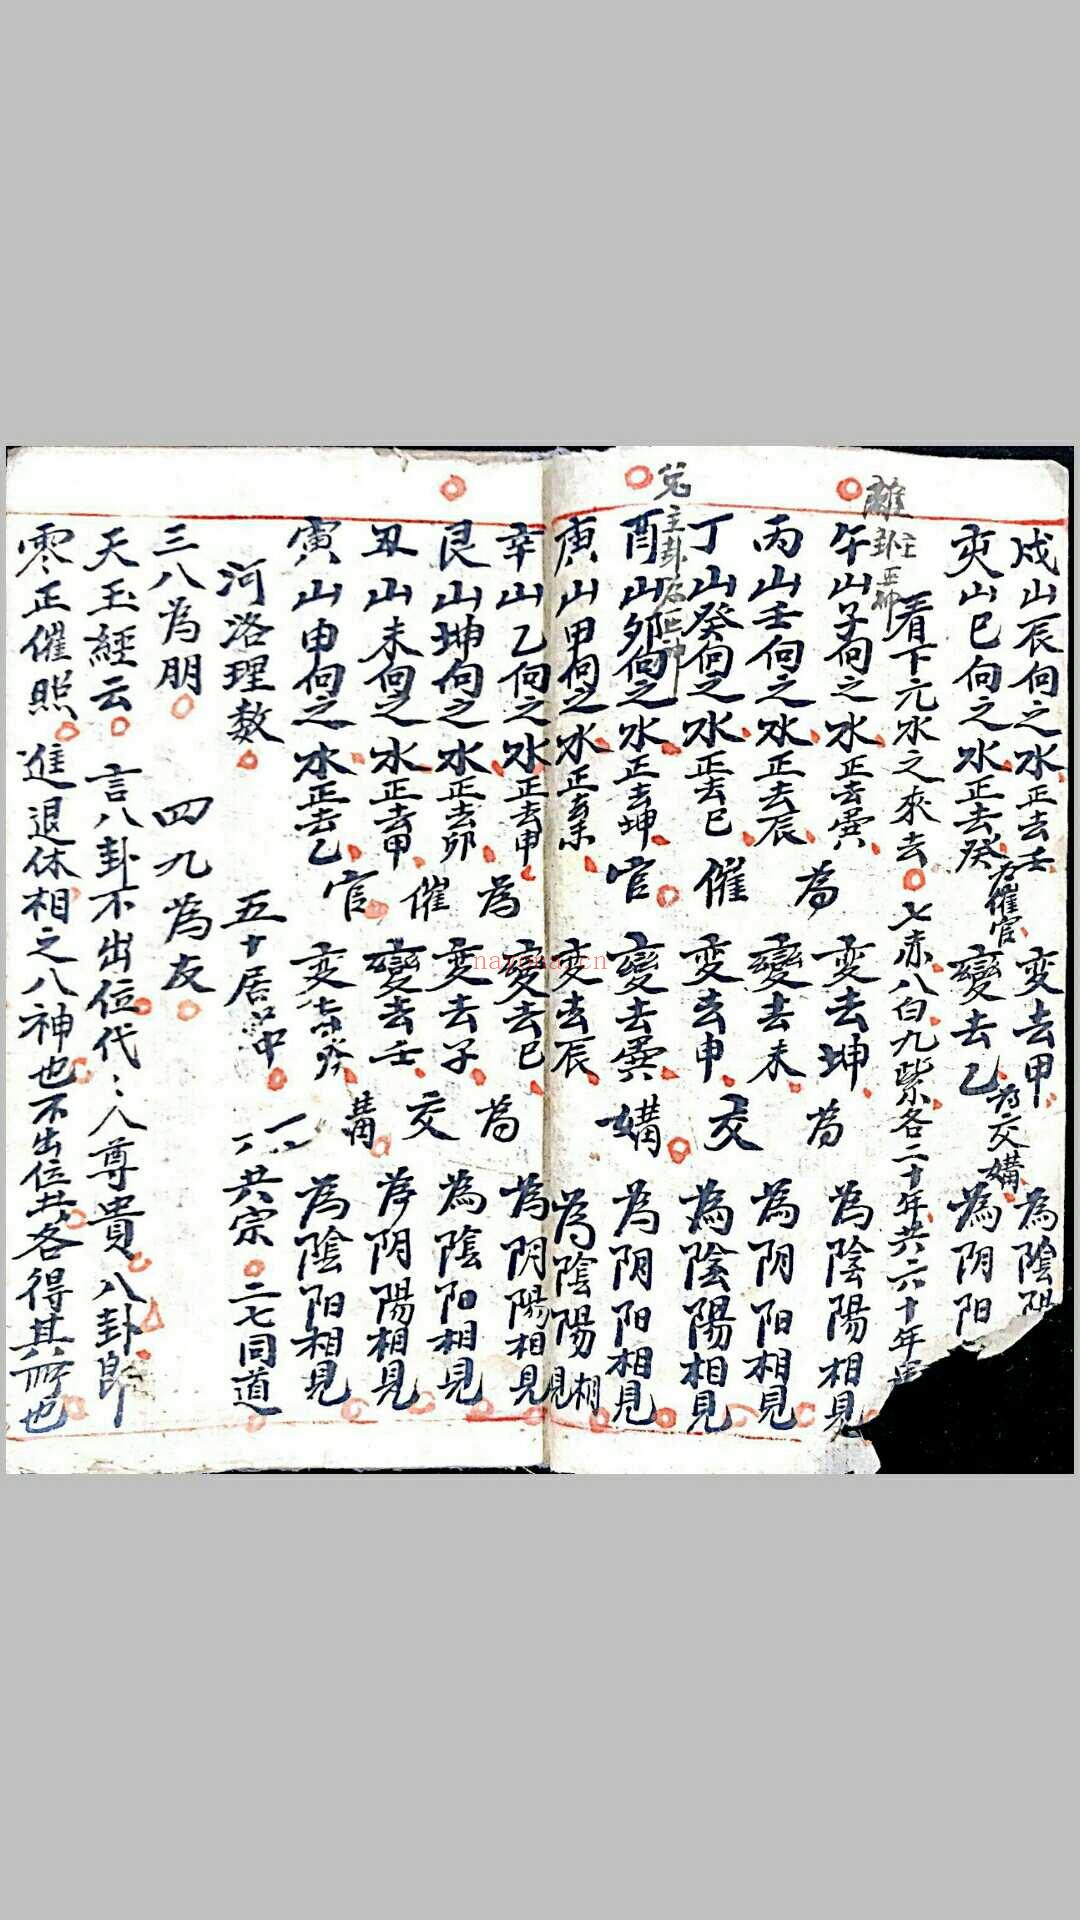 戌山辰向之水正去壬 变去甲 為隂阳
亥山巳向之水正去癸 為催官 變去乙 為交媾 為阴阳
看下元水之來去 七赤八白九紫各二十年共六十年
離卦主
午山子向之水正去巽 变去坤 為隂陽相見
丙山壬向之水正去辰 為 變去未 為 為阴阳相見
丁山癸向之水正去巳 催 変去申 交 為隂陽相見
兌主卦
酉山卯向之水正去坤 官 變去巽 媾 為阴阳相見
庚山甲向之水正去 变去辰 為隂陽相見
辛山乙向之水正去申 為 變去巳 為 為阴陽相見
艮山坤向之水正去卯 催 变去子 交 為隂阳相見
丑山未向之水正去甲 官 變去壬 媾 為阴陽相見
寅山申向之水正去乙 变去癸 為隂阳相見
河洛理数 五十居中 一六共宗 二七同道
三八為朋 四九為友
天玉經云 言八卦不出位代〻人尊貴八卦即
零正催照 進退休相之八神也不出位共各得其所也
nayona.cn